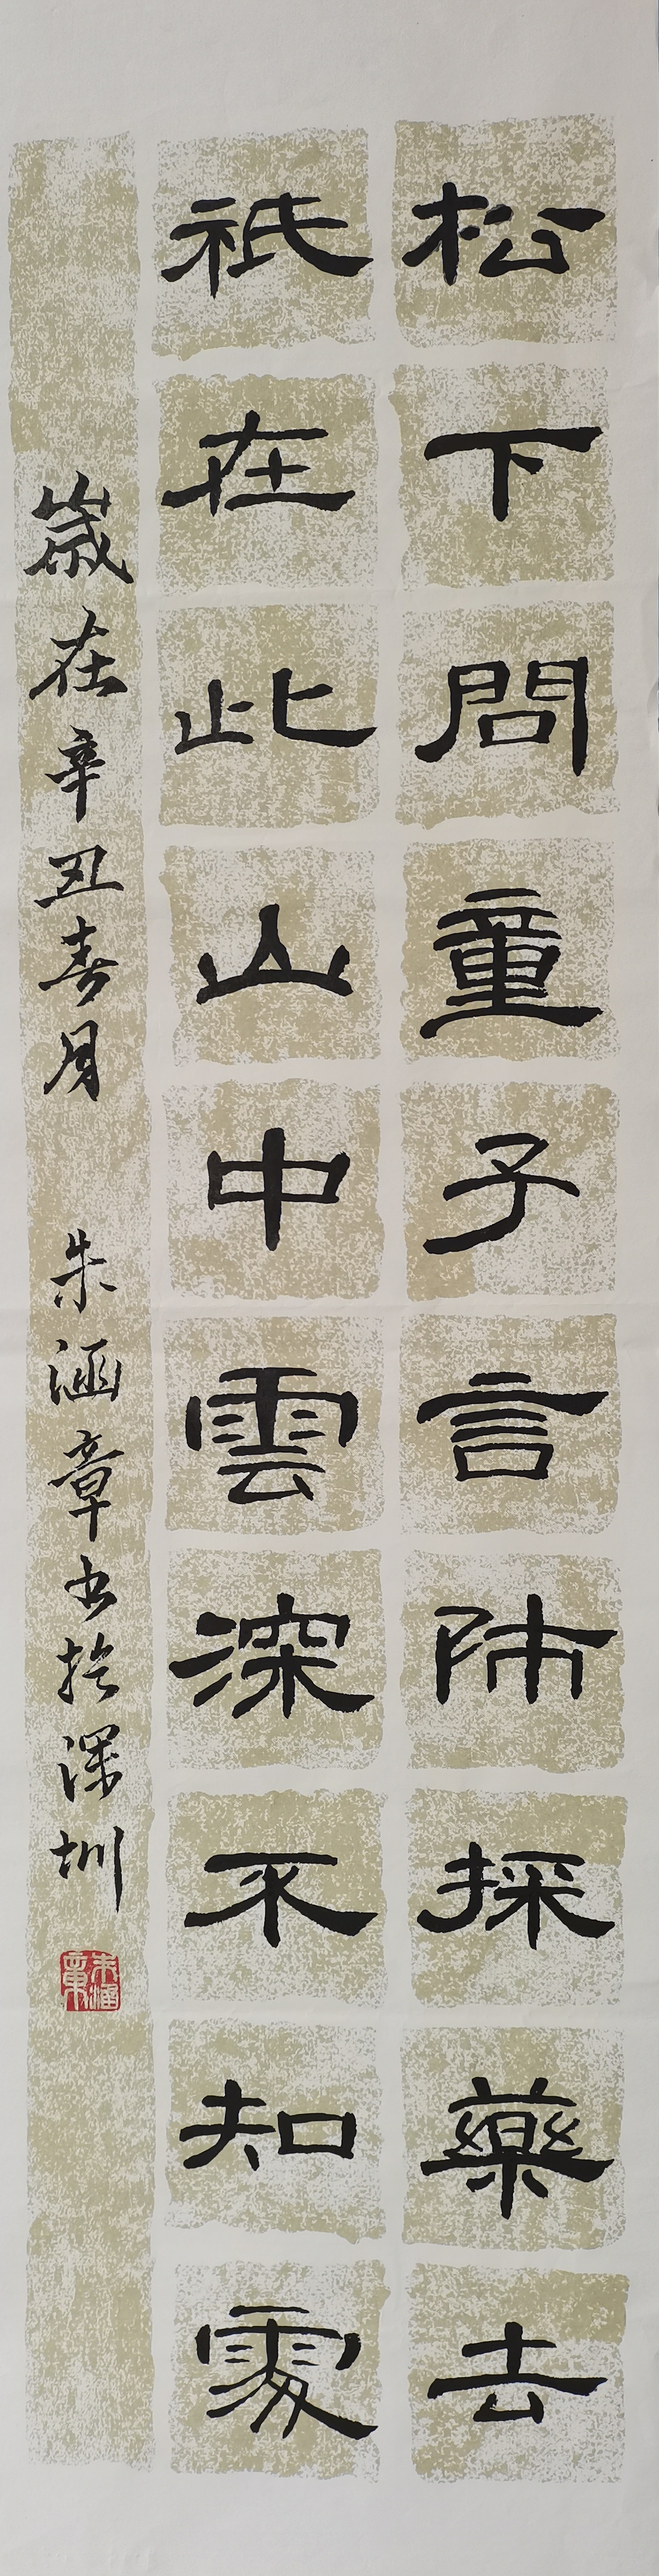 松下問童子言師採藥去
祇在此山中雲深不知處
歲在辛丑春月 朱涵章书於深圳